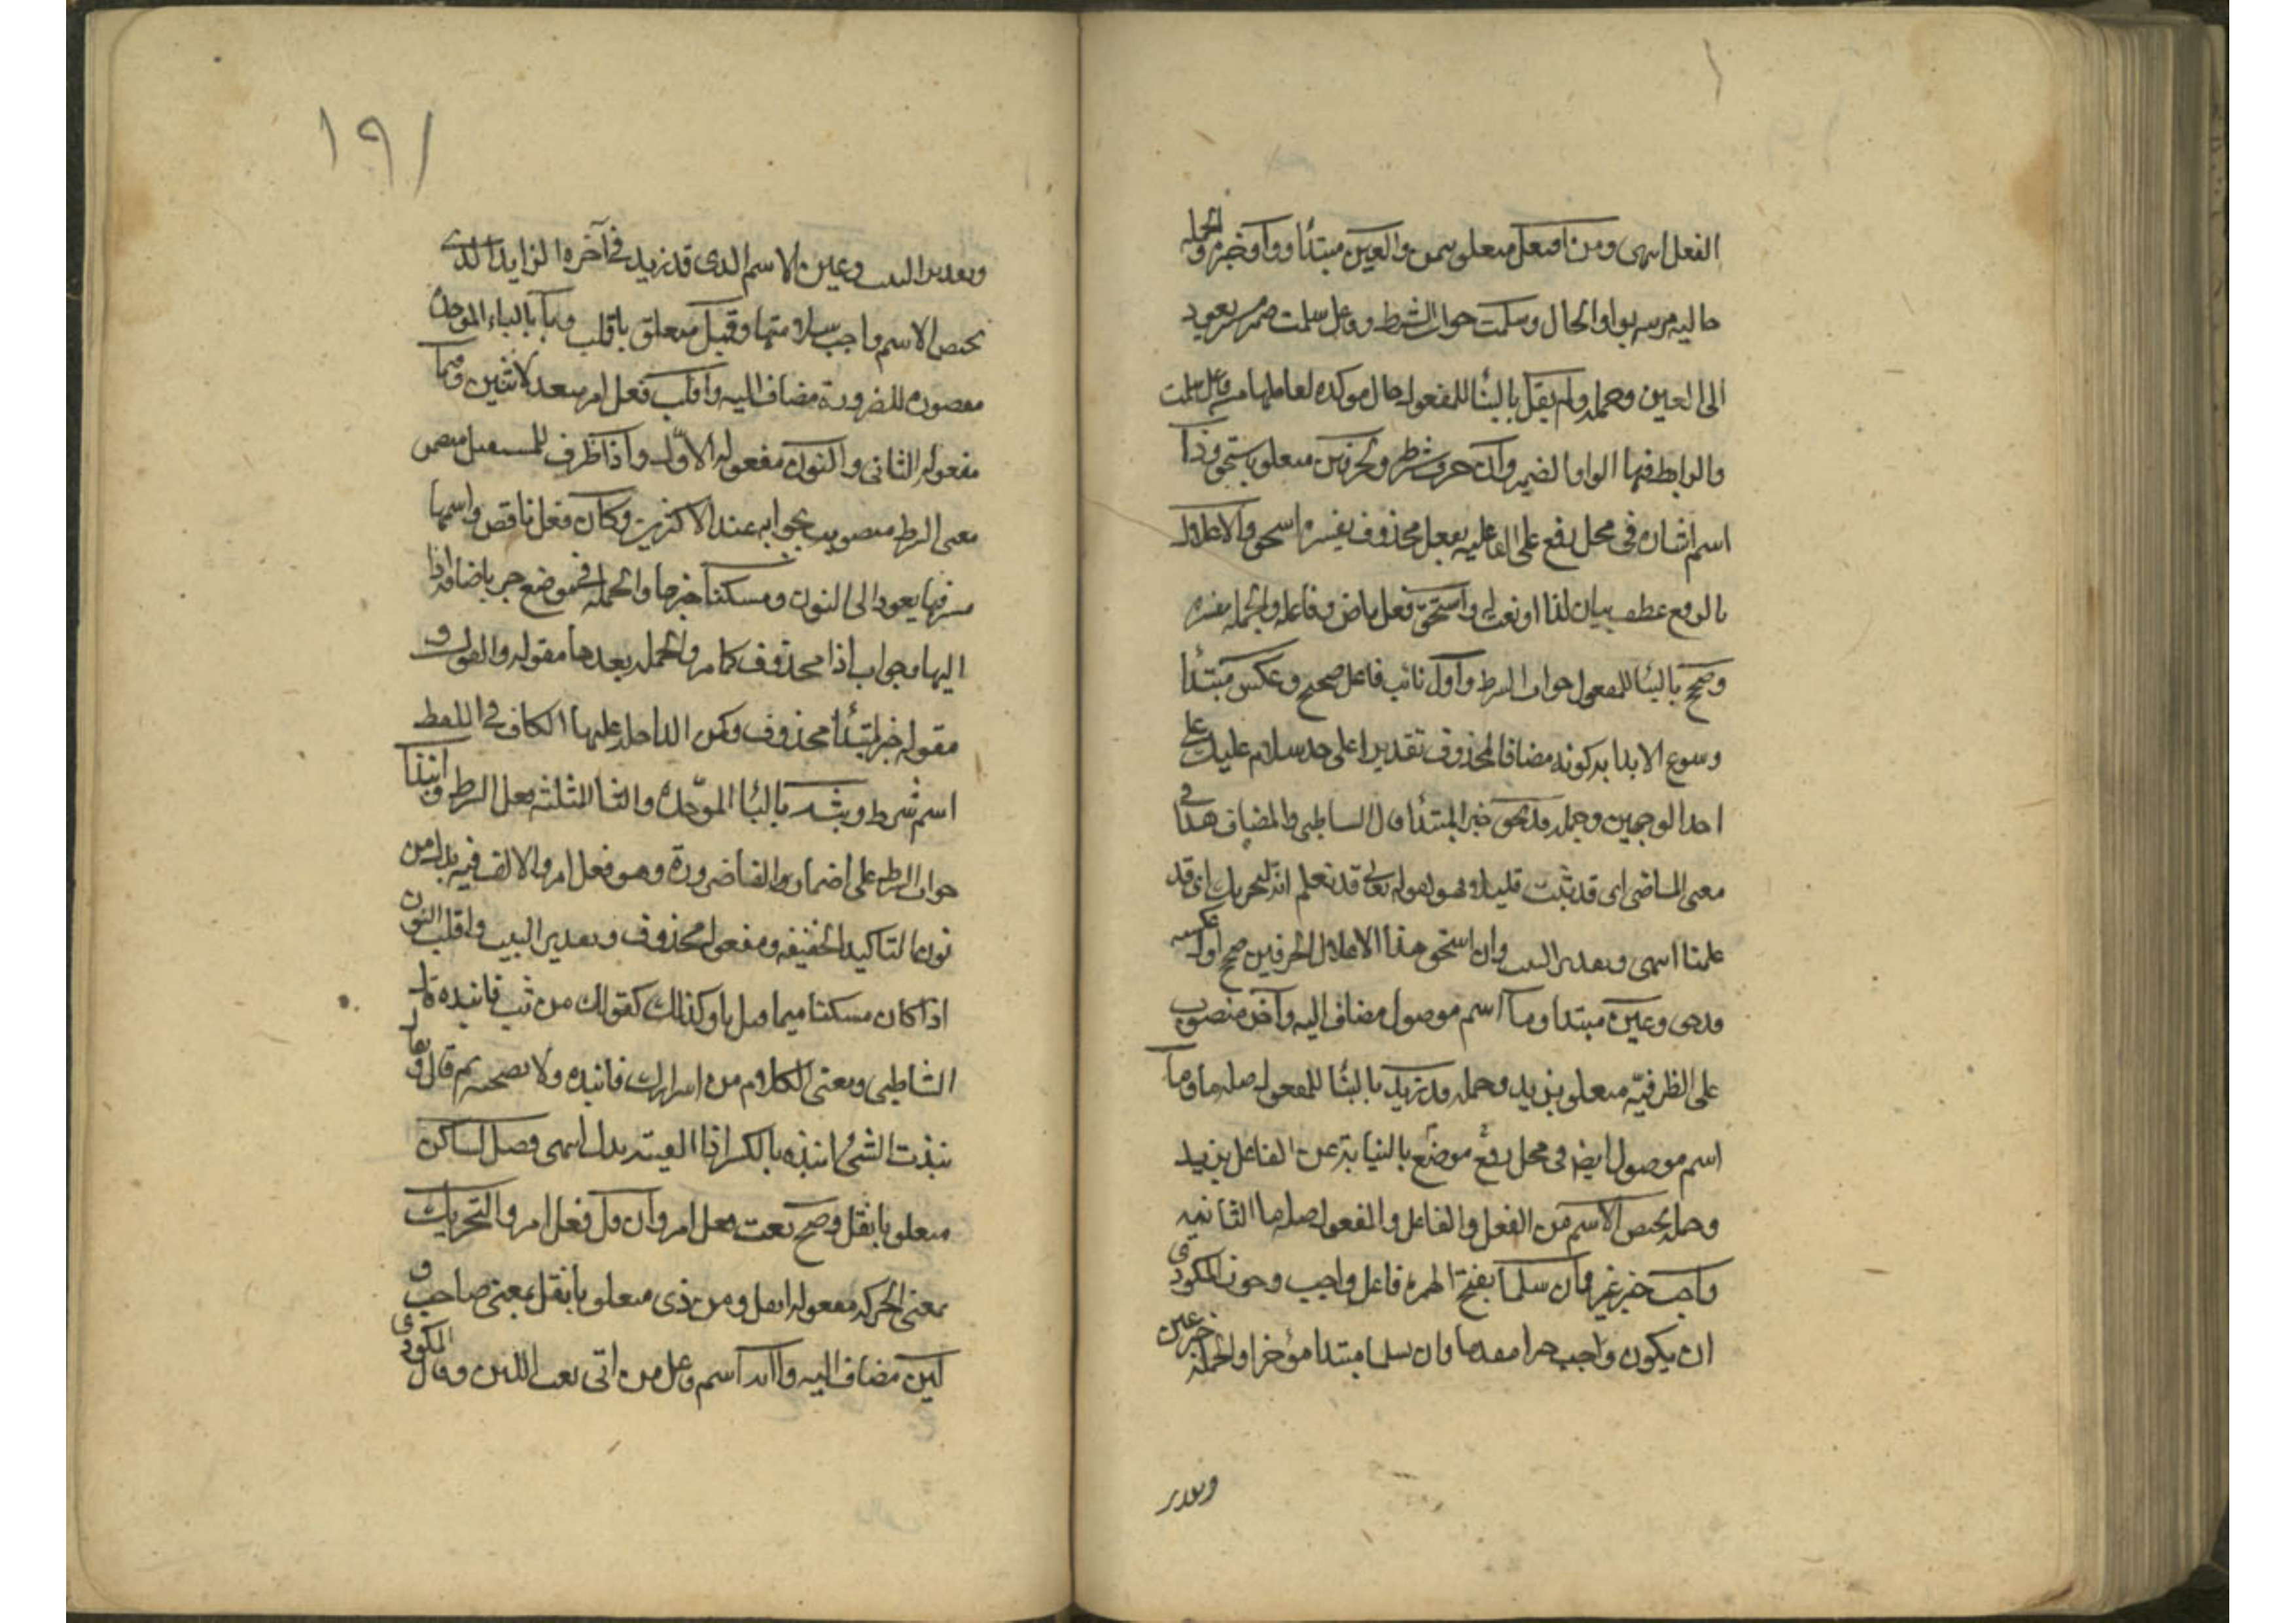 الفعل انتهى ومن افتعل متعلق بيبن والعين مبتدأ وواو خبره والجملة
حالية مرتبطة بواو الحال وسلمت جواب الشرط وفاعل سلمت ضمير يعود
الى العين وجملة ولم تعل بالبناء للمفعول حال موكده لعاملها من فاعل سلمت
والرابط فيها الواو الضمير وان حرف شرط ولحرفين متعلق باستحق وذا
اسم اشاره في محل رفع على الفاعليه بفعل محذوف يفسره استحق والاعلال
بالرفع عطف بيان لذا او نعت له واستحق فعل ماض وفاعله والجمله مفسره
وصحح بالبنا للمفعول جواب الشرط واول نائب فاعل صحح وعكس مبتدأ
وسوغ الابتدا به كونه مضافا لمحذوف تقديرا على حد سلام عليك على
احد الوجهين وجملة قد يحق خبر المبتدأ قال الشاطبي والمضارع هنا في
معنى الماضي اى قد ثبت قليلا وهو كقوله تعالى قد نعلم انه ليحزنك اى قد
علمنا انتهى وتقدير البيت وان استحق هذا الاعلال لحرفين صحح اول وعكسه
قد حق وعين مبتدا وما اسم موصول مضاف اليه وآخره منصوب
على الظرفيّه متعلق بزيد وجمله قد زيد بالبنا للمفعول صلة ما وما
اسم موصول ايضا في محل رفع موضع بالنيابة عن الفاعل بزيد
وجملة يخص الاسم من الفعل والفاعل والمفعول صله ما الثانيه
وواجب خبر عين وان سلما بفتح الهمزه فاعل واجب وجوز المكودى
ان يكون واجب خبرا مقدما وان يسلما مبتدا مؤخرا والجمله خبر عين
وتقدير
١٩١
وتقدير البيت وعين الاسم الذى قد زيد في آخره الزايد الذى
يخص الاسم واجب سلامتها وقبل متعلق باقلب وبا بالباء الموحدة
مقصوره للضرورة مضاف اليه واقلب فعل امر متعد لاثنين وميما
مفعوله الثاني والنون مفعوله الاوّل واذا ظرف للمستقبل مضمن
معنى الشرط منصوب بجوابه عند الاكثرين وكان فعل ناقص واسمها
مستتر فيها يعود الى النون ومسكنا خبرها والجمله في موضع جر باضافه اذا
اليها وجواب اذا محذوف كما مر والجمله بعدها مقوله والقول و
مقوله خبر لمبتدأ محذوف ومن الداخل عليها الكاف في اللفظ
اسم شرط وبت بالبا الموّحدة والتا المثلثه فعل الشرط وانبذا
جواب الشرط على اضمار الفا ضرورة وهو فعل امر والالف فيه بدل من
نون التاكيد الخفيفه ومفعوله محذوف وتقدير البيت واقلب النون
اذا كان مسكنا ميما قبل با وكذلك كقولك من بت فانبذه قال
الشاطبي ومعنى الكلام من اسرارك فانبذه ولا تصحبه ثم قال ويقال
نبذت الشئ انبذه بالكسر اذا القيته من يدك انتهى فصل لساكن
متعلق بانقل وصح نعت لساكن وانقل فعل امر والتحريك
بمعنى الحركه مفعول انقل ومن ذى متعلق بانقل بمعنى صاحب و
لين مضاف اليه وآت اسم فاعل من اتى نعت للين وقال المكودى